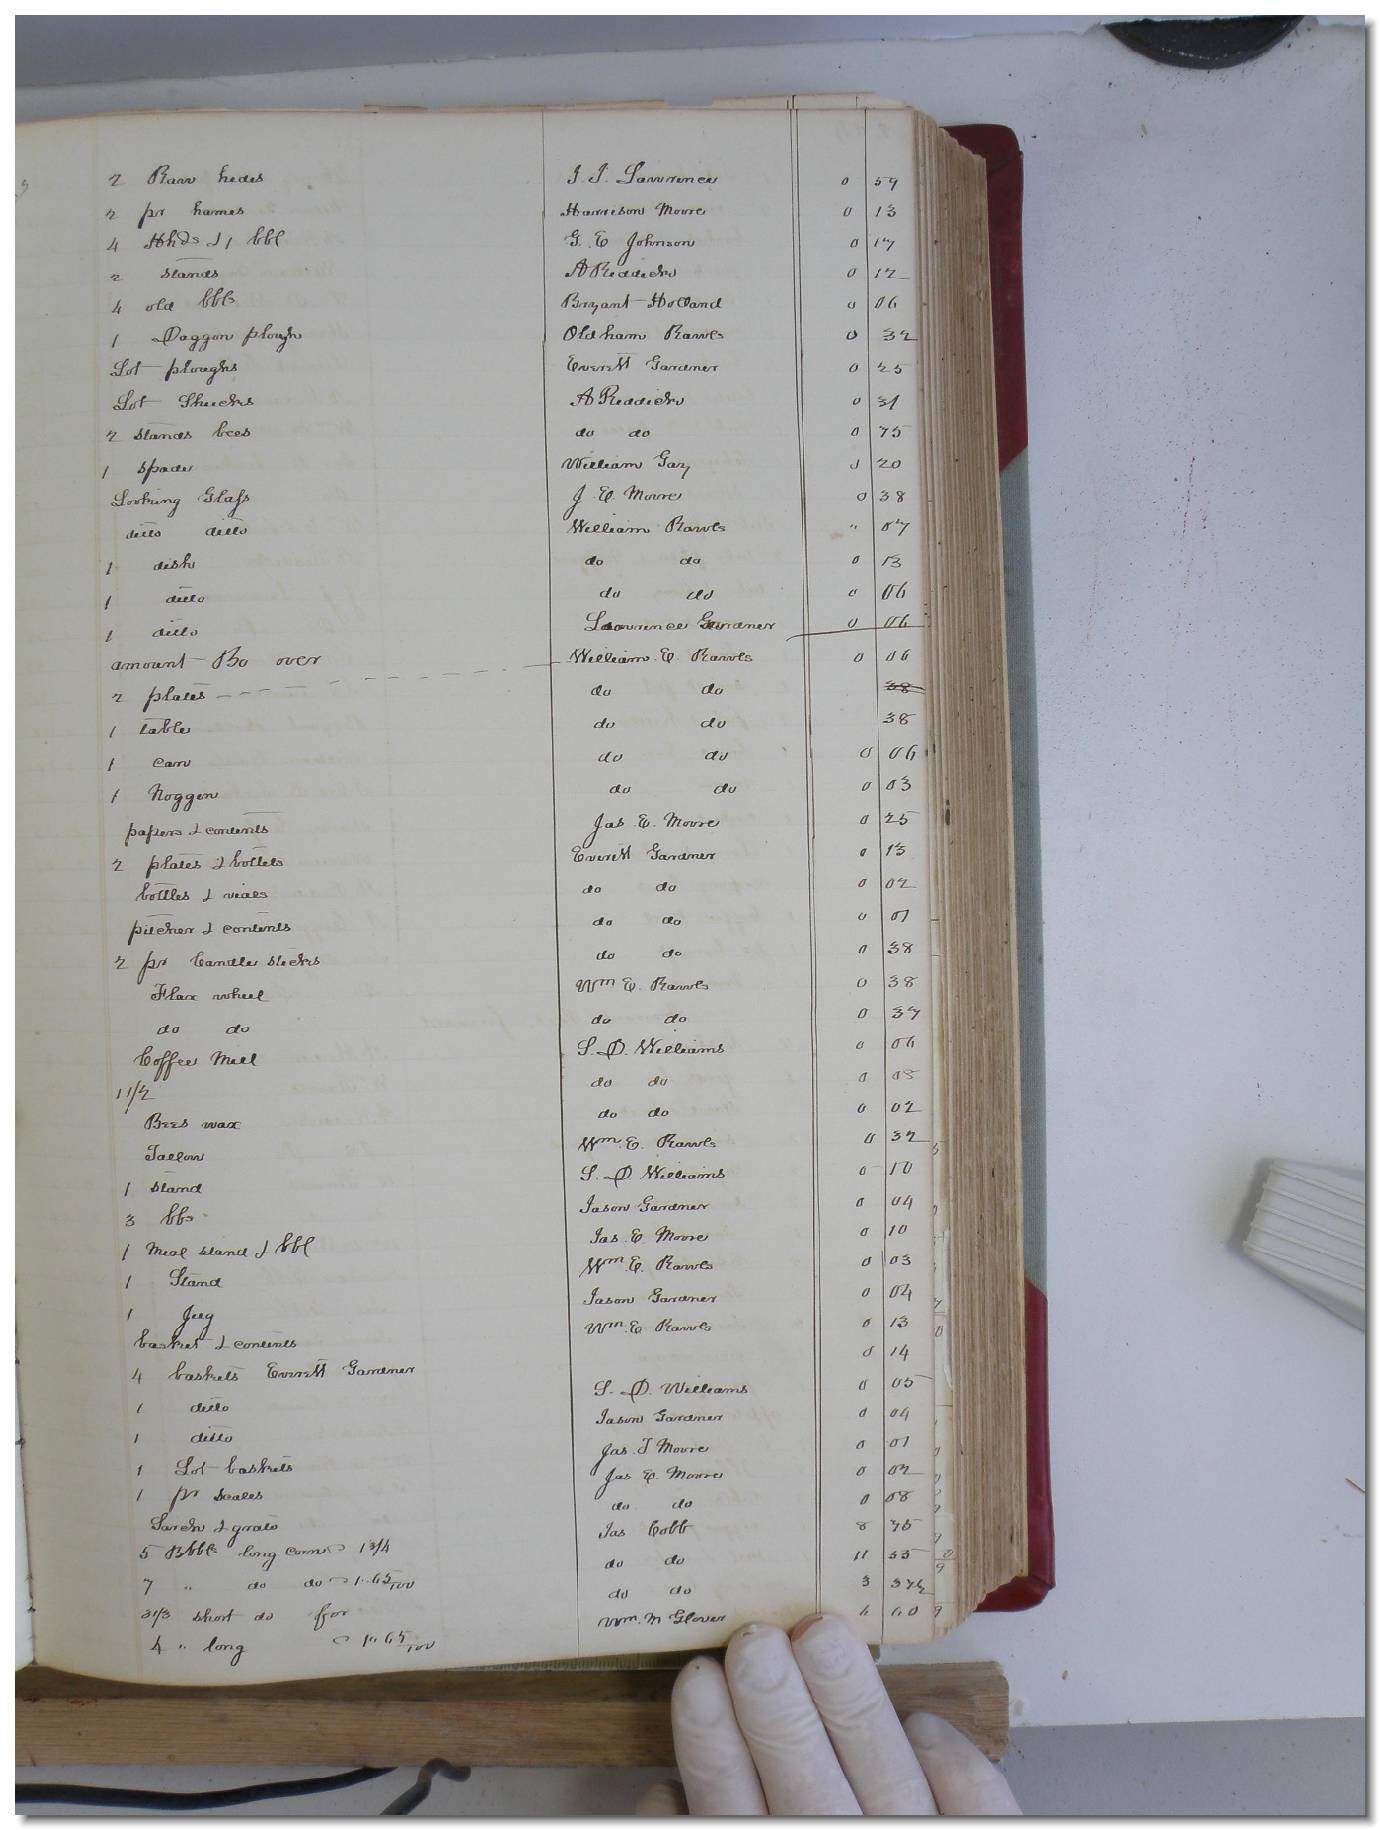 2 Raw hides J. J. Lawrence 0 59
2 pr hames Harrison Moore 0 13
4 Hhds & 1 bbl G. E Johnson 0 17
2 stands A Riddick 0 12
4 old bbls Bryant Holland 0 06
1 Daggon plough Oldham Rawls 0 32
Lot ploughs Everett Gardner 0 25
Lot A Riddick 0 31
2 stands bees do do 0 75
1 spade William Gay 0 20
Looking Glass J. E. Moore 0 38
ditto ditto William Rawls " 07
1 dish do do 0 13
1 ditto do do 0 06
1 ditto Lawrence Gardner 0 06
amount Bo over William E. Rawls 0 06
2 plates do do 38
1 table do do 38
1 can do do 0 06
1 Noggin do do 0 03
papers & contents Jas E. Moore 0 25
2 plates & bottels Everett Gardner 0 13
bottles & vials do do 0 02
pitcher & contents do do 0 01
2 pr Candle sticks do do 0 38
Flax wheel Wm E. Rawls 0 38
do do do do 0 37
Coffee Mill S. D. Williams 0 06
11/2 do do 0 05
Bees wax do do 0 02
Tallow Wm. E. Rawls 0 32
1 stand S. D. Williams 0 10
3 bbs Jason Gardner 0 04
1 Meal stand & bbl Jas. E Moore 0 10
1 Stand Wm E. Rawls 0 03
1 Jug Jason Gardner 0 04
basket & contents Wm. E Rawls 0 13
4 baskets Everett Gardner 0 14
1 ditto S. D. Williams 0 05
1 ditto Jason Gardner 0 04
1 Lot baskets Jas. T Moore 0 01
1 pr scales Jas E. Moore 0 02
do do 0 08
5 Bbbls long corn 1 3/4 Jas Cobb 8 75
7 " do do 1.65/100 do do 11 55
3 1/3 short do for do do 3 37½
4 " long 1.65/100 Wm. M Glover 6 60